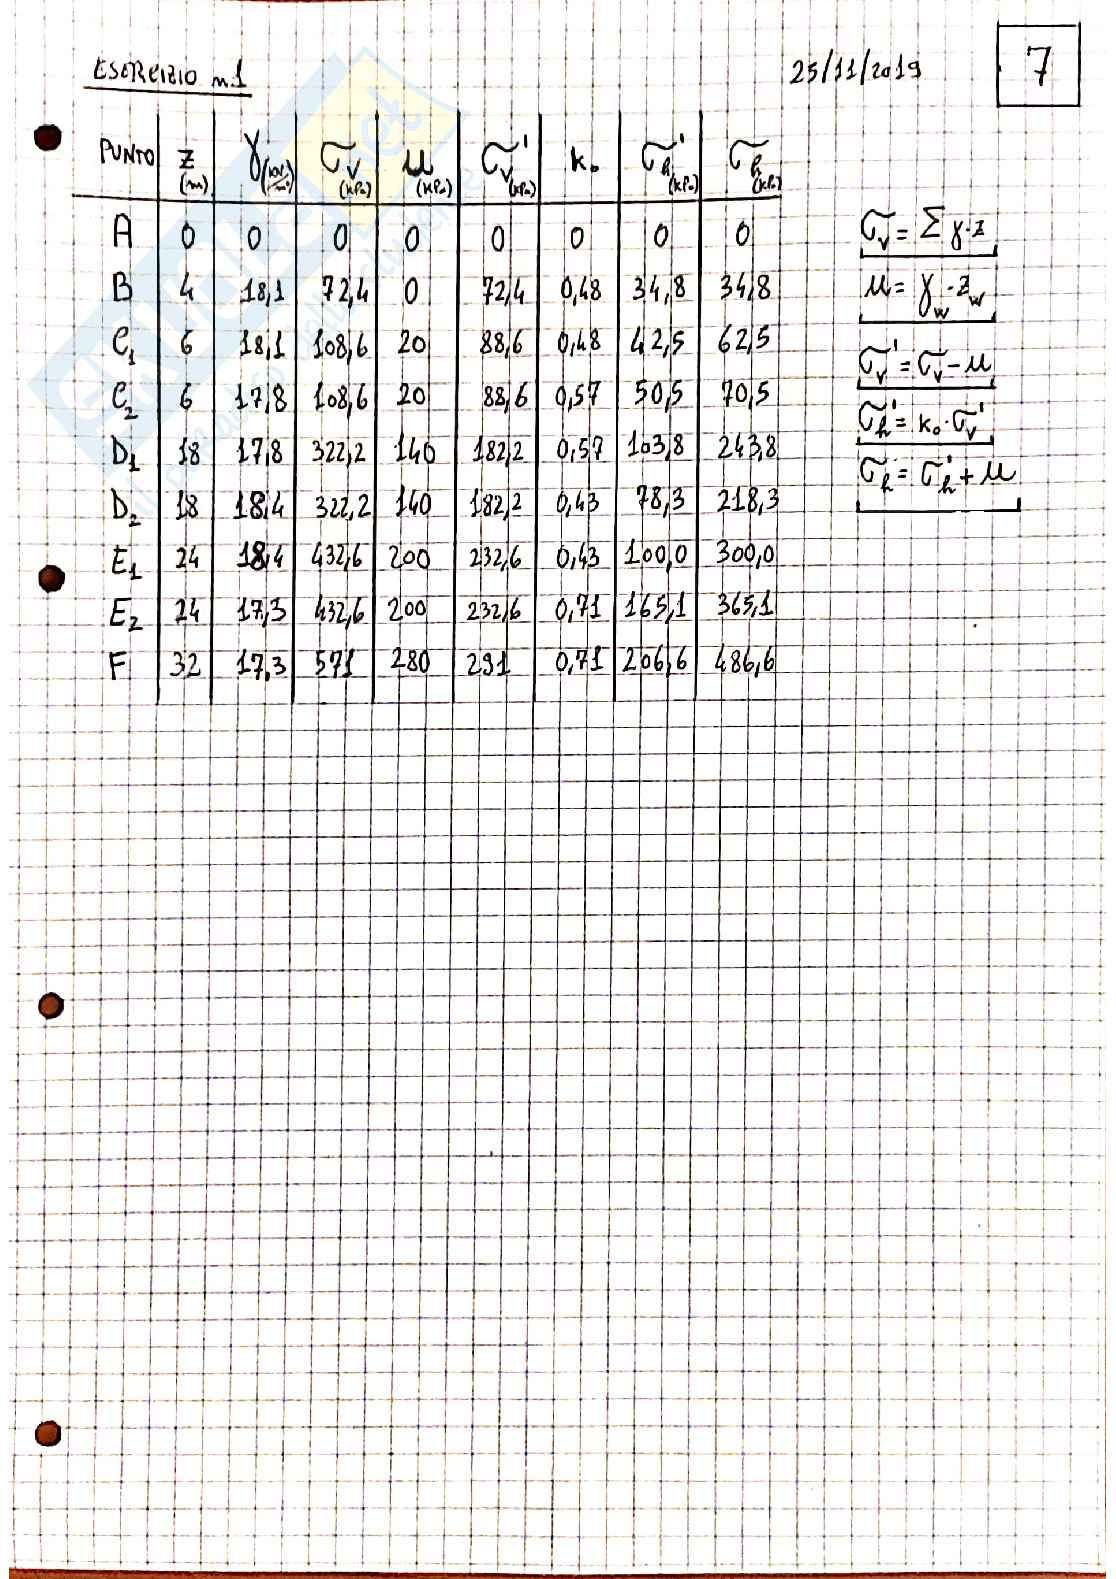 ESERCIZIO n.1 25/11/2019 7
PUNTO z (m) γ (kN/m³) σv (kPa) u (kPa) σv' (kPa) k₀ σh' (kPa) σh (kPa)
A 0 0 0 0 0 0 0 0
B 4 18,1 72,4 0 72,4 0,48 34,8 34,8
C₁ 6 18,1 108,6 20 88,6 0,48 42,5 62,5
C₂ 6 17,8 108,6 20 88,6 0,57 50,5 70,5
D₁ 18 17,8 322,2 140 182,2 0,57 103,8 243,8
D₂ 18 18,4 322,2 140 182,2 0,43 78,3 218,3
E₁ 24 18,4 432,6 200 232,6 0,43 100,0 300,0
E₂ 24 17,3 432,6 200 232,6 0,71 165,1 365,1
F 32 17,3 571 280 291 0,71 206,6 486,6
σv = Σ γ·z
u = γw·zw
σv' = σv - u
σh' = k₀·σv'
σh = σh' + u